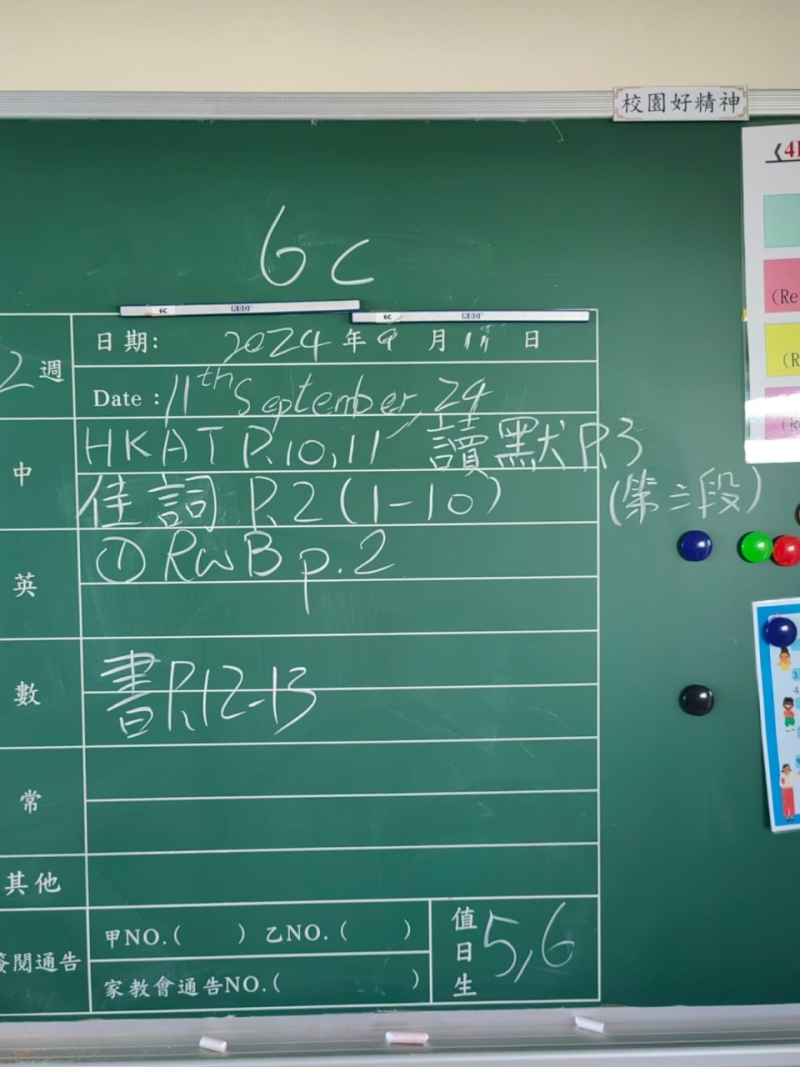 校園好精神
6C
6C RBD
6C RBD
2 週
日期: 2024 年 9 月 11 日
Date : 11th September, 24
中
HKAT P.10,11 讀默 P.3
佳詞 P.2 (1-10) (第二段)
英
① RWB p.2
數
書 P.12-13
常
其他
閱通告
甲NO.( ) 乙NO.( )
家教會通告NO.( )
值日生 5,6
(Re
(R